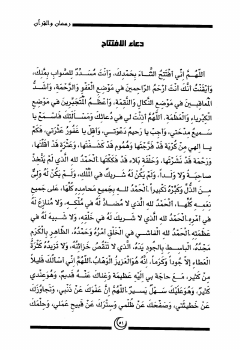 رمضان والقرآن
دعاء الافتتاح
اللّهُمَّ إنّي أفْتَتِحُ الثَّناءَ بِحَمْدِكَ، وَأنْتَ مُسَدِّدٌ لِلصَّوابِ بِمَنِّكَ،
وَأيْقَنْتُ أنَّكَ أنْتَ أرْحَمُ الرّاحِمينَ في مَوْضِعِ الْعَفْوِ وَالرَّحْمَةِ، وَأشَدُّ
الْمُعاقِبينَ في مَوْضِعِ النَّكالِ وَالنَّقِمَةِ، وَأعْظَمُ الْمُتَجَبِّرينَ في مَوْضِعِ
الْكِبْرِياءِ وَالْعَظَمَةِ. اللّهُمَّ أذِنْتَ لي في دُعائِكَ وَمَسْألَتِكَ، فَاسْمَعْ يا
سَميعُ مِدْحَتي، وَأجِبْ يا رَحيمُ دَعْوَتي، وَأقِلْ يا غَفُورُ عَثْرَتي، فَكَمْ
يا إلهي مِنْ كُرْبَةٍ قَدْ فَرَّجْتَها وَهُمُومٍ قَدْ كَشَفْتَها، وَعَثْرَةٍ قَدْ أقَلْتَها،
وَرَحْمَةٍ قَدْ نَشَرْتَها، وَحَلْقَةِ بَلاءٍ قَدْ فَكَكْتَها. الْحَمْدُ للهِ الَّذي لَمْ يَتَّخِذْ
صاحِبَةً وَلا وَلَداً، وَلَمْ يَكُنْ لَهُ شَريكٌ في الْمُلْكِ، وَلَمْ يَكُنْ لَهُ وَلِيٌّ
مِنَ الذُّلِّ وَكَبِّرْهُ تَكْبيراً. الْحَمْدُ للهِ بِجَميعِ مَحامِدِهِ كُلِّها، عَلى جَميعِ
نِعَمِهِ كُلِّها. الْحَمْدُ للهِ الَّذي لا مُضادَّ لَهُ في مُلْكِهِ، وَلا مُنازِعَ لَهُ
في أمْرِهِ. الْحَمْدُ للهِ الَّذي لا شَريكَ لَهُ في خَلْقِهِ، وَلا شَبيهَ لَهُ في
عَظَمَتِهِ. الْحَمْدُ للهِ الْفاشي في الْخَلْقِ أمْرُهُ وَحَمْدُهُ، الظّاهِرِ بِالْكَرَمِ
مَجْدُهُ، الْباسِطِ بِالْجُودِ يَدَهُ، الَّذي لا تَنْقُصُ خَزائِنُهُ، وَلا تَزيدُهُ كَثْرَةُ
الْعَطاءِ إلاّ جُوداً وَكَرَماً، إنَّهُ هُوَ الْعَزيزُ الْوَهّابُ. اللّهُمَّ إنّي أسْألُكَ قَليلاً
مِنْ كَثيرٍ، مَعَ حاجَةٍ بي إلَيْهِ عَظيمَةٍ وَغِناكَ عَنْهُ قَديمٌ، وَهُوَ عِنْدي
كَثيرٌ، وَهُوَ عَلَيْكَ سَهْلٌ يَسيرٌ. اللّهُمَّ إنَّ عَفْوَكَ عَنْ ذَنْبي، وَتَجاوُزَكَ
عَنْ خَطيئَتي، وَصَفْحَكَ عَنْ ظُلْمي وَسِتْرَكَ عَنْ قَبيحِ عَمَلي، وَحِلْمَكَ